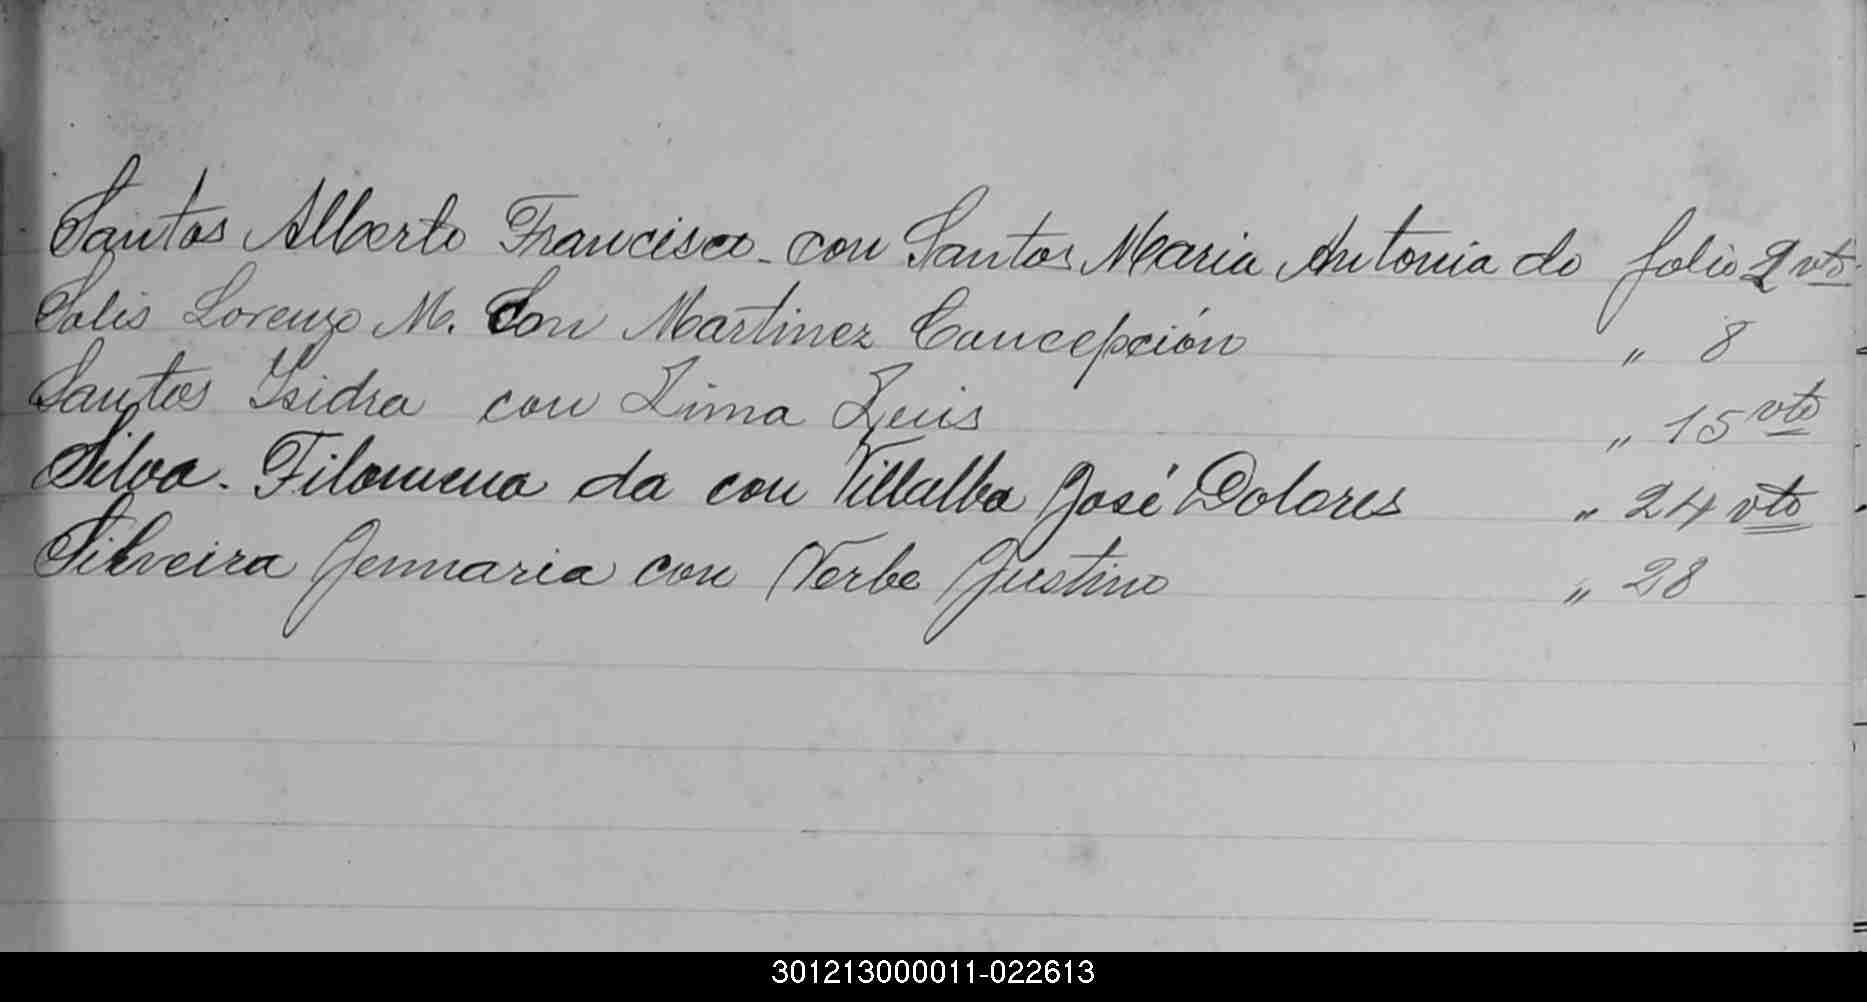 Santos Alberto Francisco - con Santos Maria Antonia do folio 2 vto.
Solis Lorenzo M. Con Martinez Concepción " 8
Santos Isidra con Lima Luis " 15 vto
Silva - Filomena da con Villalba José Dolores " 24 vto
Silveira Jennaria con Verbe Justino " 28
301213000011-022613